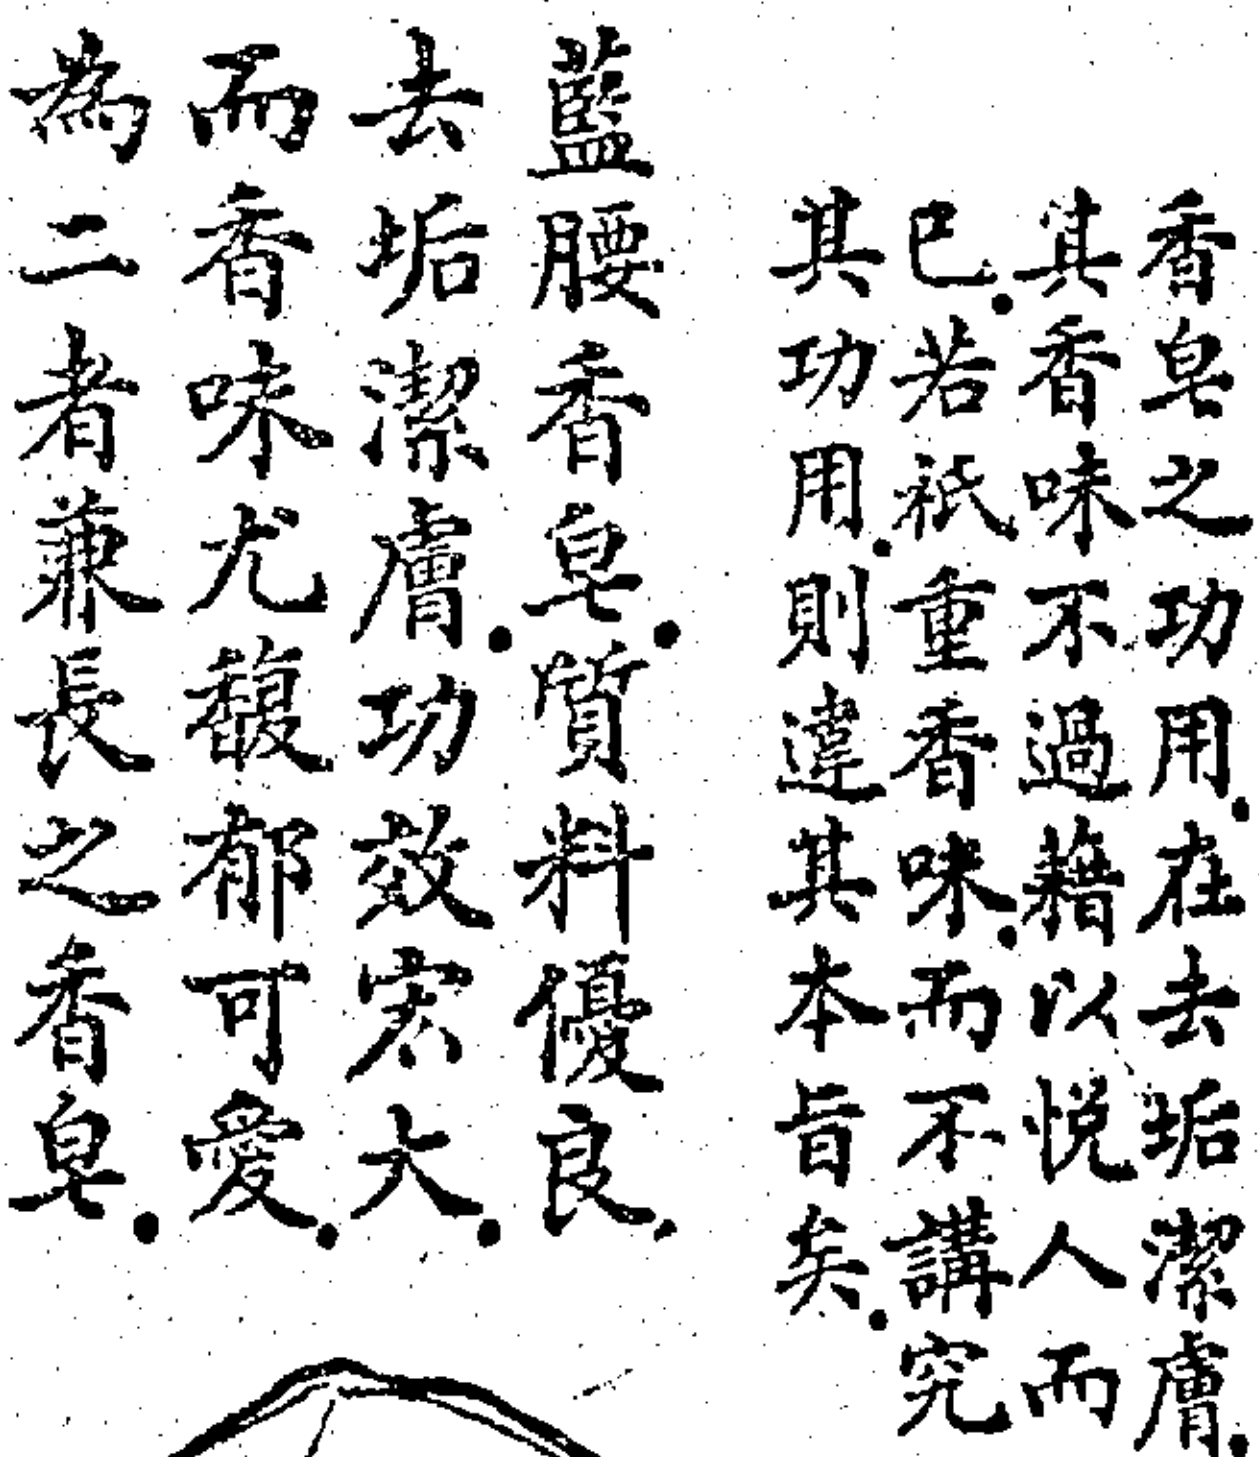 香皂之功用.在去垢潔膚.
其香味不過藉以悅人而
已.若祇重香味.而不講究
其功用.則違其本旨矣.
藍腰香皂.質料優良.
去垢潔膚.功效宏大.
而香味尤馥郁可愛.
為二者兼長之香皂.